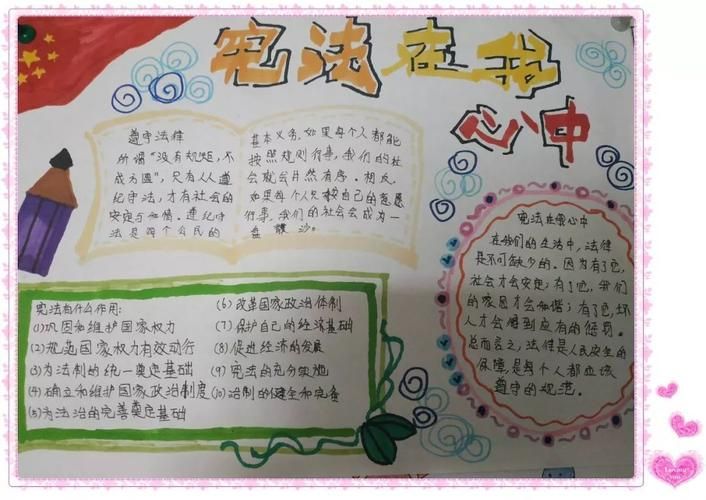 宪法在我
心中
遵守法律
所谓“没有规矩，不
成方圆”，只有人人遵
纪守法，才有社会的
安定与和谐。遵纪守
法是每个公民的
基本义务，如果每个人都能
按照规则行事，我们的社
会就会井然有序。相反，
如果每个人只按自己的意愿
行事，我们的社会会成为一
盘散沙。
宪法有什么作用:
(1)巩固和维护国家权力
(2)规范国家权力有效动行
(3)为法制的统一奠定基础
(4)确立和维护国家政治制度
(5)为法治的完善奠定基础
(6)改革国家政治体制
(7)保护自己的经济基础
(8)促进经济的发展
(9)宪法的充分实施
(10)治制的健全和完备
宪法在我心中
在我们的生活中，法律
是不可缺少的。因为有了它，
社会才会安定；有了它，我们
的家园才会和谐；有了它，坏
人才会得到应有的惩罚。
总而言之，法律是人民安全的
保障，是每个人都应该
遵守的规范。